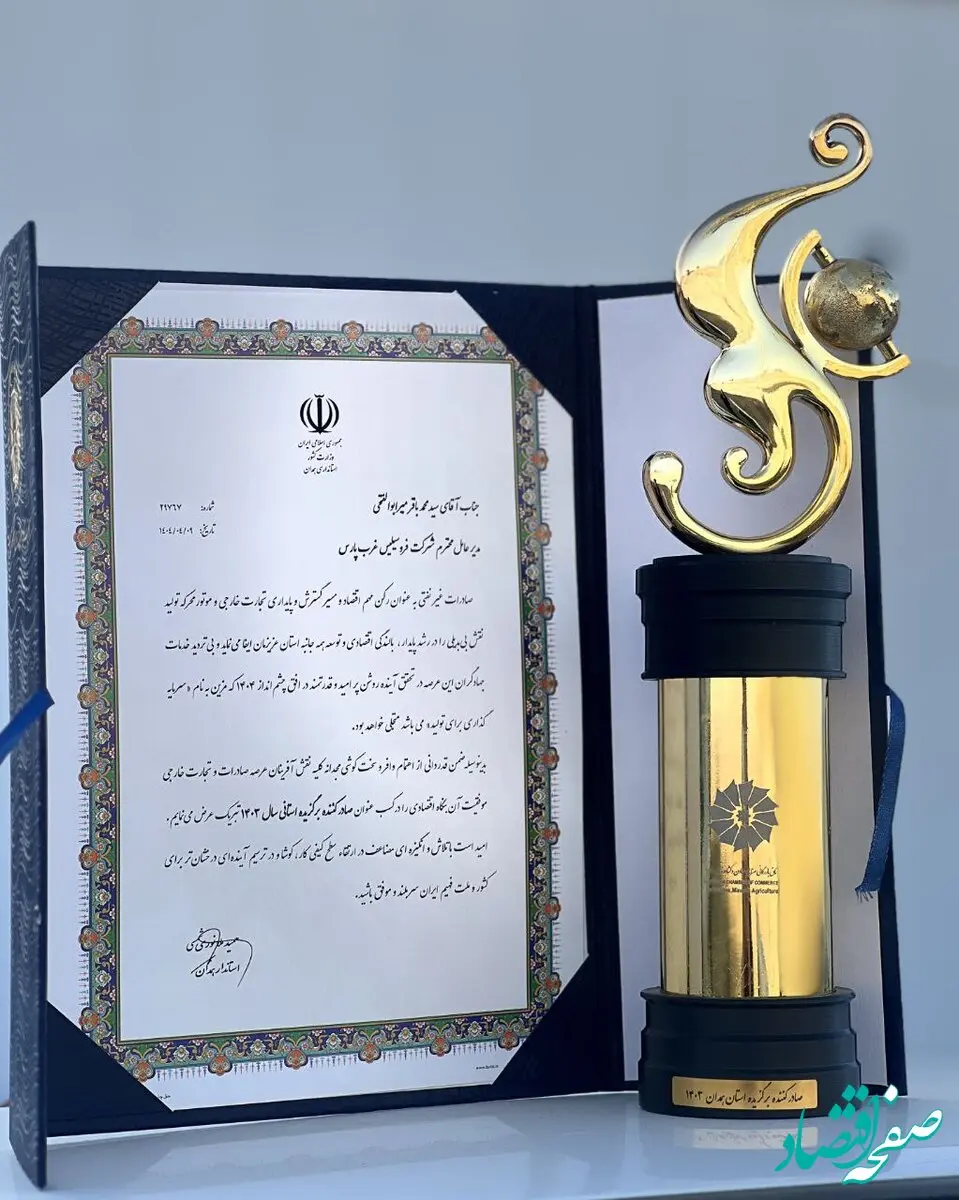 جمهوری اسلامی ایران
وزارت کشور
استانداری همدان
شماره: ۲۹۷۶۷
تاریخ: ۱۴۰۴/۰۴/۰۹
جناب آقای سید محمد باقر میرابوالفتحی
مدیر عامل محترم شرکت فروسیلیس غرب پارس
صادرات غیر نفتی به عنوان رکن مهم اقتصاد و مسیر گسترش و پایداری تجارت خارجی و موتور محرکه تولید
نقش بی بدیلی را در رشد پایدار، بالندگی اقتصادی و توسعه همه جانبه استان عزیزمان ایفا می نماید و بی تردید خدمات
جهادگران این عرصه در تحقق آینده روشن پر امید و قدرتمند در افق چشم انداز ۱۴۰۴ که مزین به نام « سرمایه
گذاری برای تولید» می باشد متجلی خواهد بود.
بدینوسیله ضمن قدردانی از اهتمام وافر و سخت کوشی مجدانه کلیه نقش آفرینان عرصه صادرات و تجارت خارجی
موفقیت آن بنگاه اقتصادی را در کسب عنوان صادر کننده برگزیده استانی سال ۱۴۰۳ تبریک عرض می نمایم.
امید است با تلاش و انگیزه ای مضاعف در ارتقاء سطح کیفی کار، کوشا و در ترسیم آینده ای درخشان تر برای
کشور و ملت فهیم ایران سربلند و موفق باشید.
استاندار همدان
CHAMBER OF COMMERCE
Agriculture
صادر کننده برگزیده استان همدان ۱۴۰۳
صفحه اقتصاد